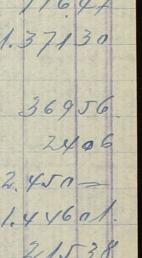 11647
1.37130
36956
2406
2.450—
1.44601.
21538